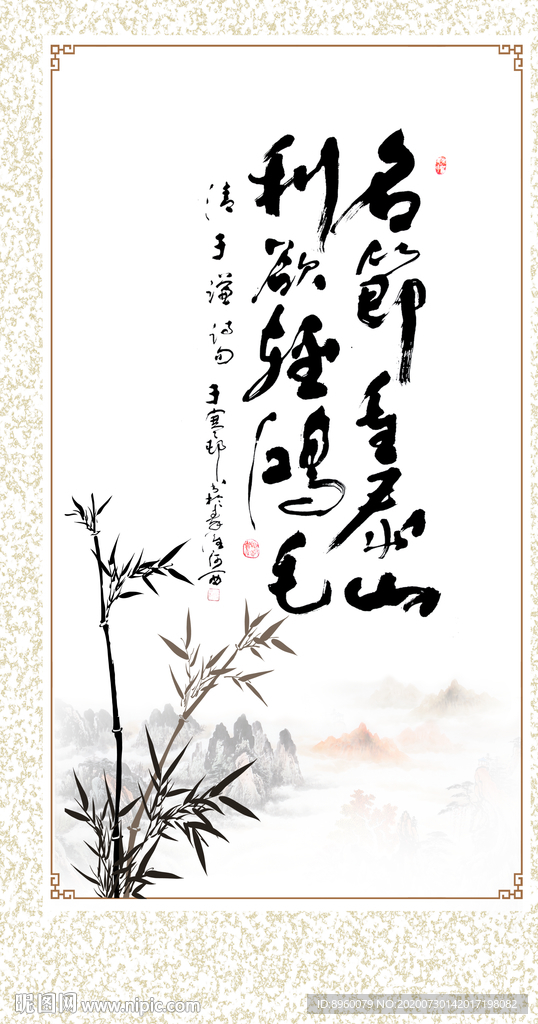 名節重泰山
利欲轻鸿毛
清于谦诗句
昵图网 www.nipic.com
ID:8960079 NO:20200730142017198082